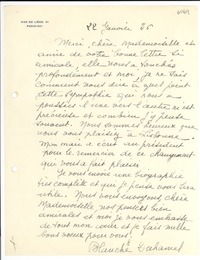 RUE DE LIÈGE 31
22 Janvier 26
Merci, chère Mademoiselle et
amie de votre bonne lettre si
amicale, elle nous a touchés
profondément et moi, je ne sais
comment vous dire à quel point
cette sympathie qui nous a
poussées l'une vers l'autre m'est
précieuse et combien j'y pense
souvent. Nous sommes heureux que
vous vous plaisiez à
Mon mari a écrit au président
pour le remercier de ce changement
qui vous a fait plaisir
Je vous envoie une biographie
très complète et que je pense vous sera
utile. Nous vous envoyons chère
Mademoiselle nos pensées bien
amicales et moi je vous embrasse
de tout mon cœur et je fais mille
bons vœux pour vous!
Blanche